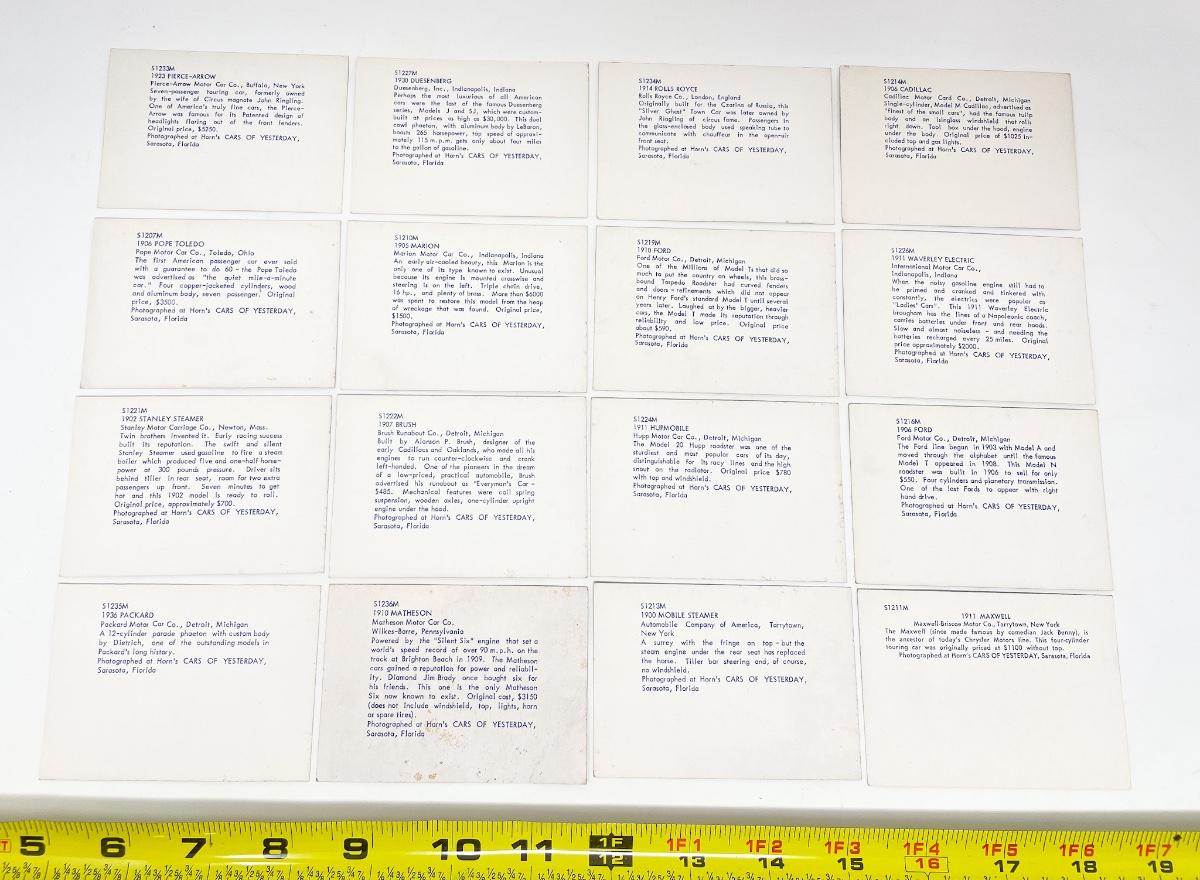 S1233M
1923 PIERCE-ARROW
Pierce-Arrow Motor Car Co., Buffalo, New York
Seven-passenger touring car, formerly owned
by the wife of Circus magnate John Ringling.
One of America's truly fine cars, the Pierce-
Arrow was famous for its Patented design of
headlights flaring out of the front fenders.
Original price, $5250.
Photographed at Horn's CARS OF YESTERDAY,
Sarasota, Florida
S1227M
1930 DUESENBERG
Duesenberg, Inc., Indianapolis, Indiana
Perhaps the most luxurious of all American
cars were the last of the famous Duesenberg
series, Models J and SJ, which were custom-
built at prices as high as $30,000. This dual
cowl phaeton, with aluminum body by LeBaron,
boasts 265 horsepower, top speed of approxi-
mately 115 m.p.m. gets only about four miles
to the gallon of gasoline.
Photographed at Horn's CARS OF YESTERDAY,
Sarasota, Florida
S1234M
1914 ROLLS ROYCE
Rolls Royce Co., London, England
Originally built for the Czarina of Russia, this
"Silver Ghost" Town Car was later owned by
John Ringling of circus fame. Passengers in
the glass-enclosed body used speaking tube to
communicate with chauffeur in the open-air
front seat.
Photographed at Horn's CARS OF YESTERDAY,
Sarasota, Florida
S1214M
1906 CADILLAC
Cadillac Motor Card Co., Detroit, Michigan
Single-cylinder, Model M Cadillac, advertised as
"finest of the small cars", had the famous tulip
body and an isinglass windshield that rolls
right down. Tool box under the hood, engine
under the body. Original price of $1025 in-
cluded top and gas lights.
Photographed at Horn's CARS OF YESTERDAY,
Sarasota, Florida
S1207M
1906 POPE TOLEDO
Pope Motor Car Co., Toledo, Ohio
The first American passenger car ever sold
with a guarantee to do 60 - the Pope Toledo
was advertised as "the quiet mile-a-minute
car." Four copper-jacketed cylinders, wood
and aluminum body, seven passenger. Original
price, $3500.
Photographed at Horn's CARS OF YESTERDAY,
Sarasota, Florida
S1210M
1905 MARION
Marion Motor Car Co., Indianapolis, Indiana
An early air-cooled beauty, this Marion is the
only one of its type known to exist. Unusual
because its engine is mounted crosswise and
steering is on the left. Triple chain drive,
16 hp., and plenty of brass. More than $6000
was spent to restore this model from the heap
of wreckage that was found. Original price,
$1500.
Photographed at Horn's CARS OF YESTERDAY,
Sarasota, Florida
S1219M
1910 FORD
Ford Motor Co., Detroit, Michigan
One of the Millions of Model Ts that did so
much to put the country on wheels, this brass-
bound Torpedo Roadster had curved fenders
and doors - refinements which did not appear
on Henry Ford's standard Model T until several
years later. Laughed at by the bigger, heavier
cars, the Model T made its reputation through
reliability and low price. Original price
about $590.
Photographed at Horn's CARS OF YESTERDAY,
Sarasota, Florida
S1226M
1911 WAVERLEY ELECTRIC
International Motor Car Co.,
Indianapolis, Indiana
When the noisy gasoline engine still had to
be primed and cranked and tinkered with
constantly, the electrics were popular as
"Ladies' Cars". This 1911 Waverley Electric
brougham has the lines of a Napoleonic coach,
carries batteries under front and rear hoods.
Slow and almost noiseless - and needing the
batteries recharged every 25 miles. Original
price approximately $2000.
Photographed at Horn's CARS OF YESTERDAY,
Sarasota, Florida
S1221M
1902 STANLEY STEAMER
Stanley Motor Carriage Co., Newton, Mass.
Twin brothers invented it. Early racing success
built its reputation. The swift and silent
Stanley Steamer used gasoline to fire a steam
boiler which produced five and one-half horse-
power at 300 pounds pressure. Driver sits
behind tiller in rear seat, room for two extra
passengers up front. Seven minutes to get
hot and this 1902 model is ready to roll.
Original price, approximately $700.
Photographed at Horn's CARS OF YESTERDAY,
Sarasota, Florida
S1222M
1907 BRUSH
Brush Runabout Co., Detroit, Michigan
Built by Alanson P. Brush, designer of the
early Cadillacs and Oaklands, who made all his
engines to run counter-clockwise and crank
left-handed. One of the pioneers in the dream
of a low-priced, practical automobile, Brush
advertised his runabout as "Everyman's Car -
$485. Mechanical features were coil spring
suspension, wooden axles, one-cylinder upright
engine under the hood.
Photographed at Horn's CARS OF YESTERDAY,
Sarasota, Florida
S1224M
1911 HUPMOBILE
Hupp Motor Car Co., Detroit, Michigan
The Model 20 Hupp roadster was one of the
sturdiest and most popular cars of its day,
distinguishable for its racy lines and the high
snout on the radiator. Original price $780
with top and windshield.
Photographed at Horn's CARS OF YESTERDAY,
Sarasota, Florida
S1216M
1906 FORD
Ford Motor Co., Detroit, Michigan
The Ford line began in 1903 with Model A and
moved through the alphabet until the famous
Model T appeared in 1908. This Model N
roadster was built in 1906 to sell for only
$550. Four cylinders and planetary transmission.
One of the last Fords to appear with right
hand drive.
Photographed at Horn's CARS OF YESTERDAY,
Sarasota, Florida
S1235M
1936 PACKARD
Packard Motor Car Co., Detroit, Michigan
A 12-cylinder parade phaeton with custom body
by Dietrich, one of the outstanding models in
Packard's long history.
Photographed at Horn's CARS OF YESTERDAY,
Sarasota, Florida
S1236M
1910 MATHESON
Matheson Motor Car Co.
Wilkes-Barre, Pennsylvania
Powered by the "Silent Six" engine that set a
world's speed record of over 90 m.p.h. on the
track at Brighton Beach in 1909. The Matheson
cars gained a reputation for power and reliabil-
ity. Diamond Jim Brady once bought six for
his friends. This one is the only Matheson
Six now known to exist. Original cost, $3150
(does not include windshield, top, lights, horn
or spare tires).
Photographed at Horn's CARS OF YESTERDAY,
Sarasota, Florida
S1213M
1900 MOBILE STEAMER
Automobile Company of America, Tarrytown,
New York
A surrey with the fringe on top - but the
steam engine under the rear seat has replaced
the horse. Tiller bar steering and, of course,
no windshield.
Photographed at Horn's CARS OF YESTERDAY,
Sarasota, Florida
S1211M
1911 MAXWELL
Maxwell-Briscoe Motor Co., Tarrytown, New York
The Maxwell (since made famous by comedian Jack Benny), is
the ancestor of today's Chrysler Motors line. This four-cylinder
touring car was originally priced at $1100 without top.
Photographed at Horn's CARS OF YESTERDAY, Sarasota, Florida
5 6 7 8 9 10 11 1F 1F1 1F2 1F3 1F4 1F5 1F6 1F7
12 13 14 15 16 17 18 19